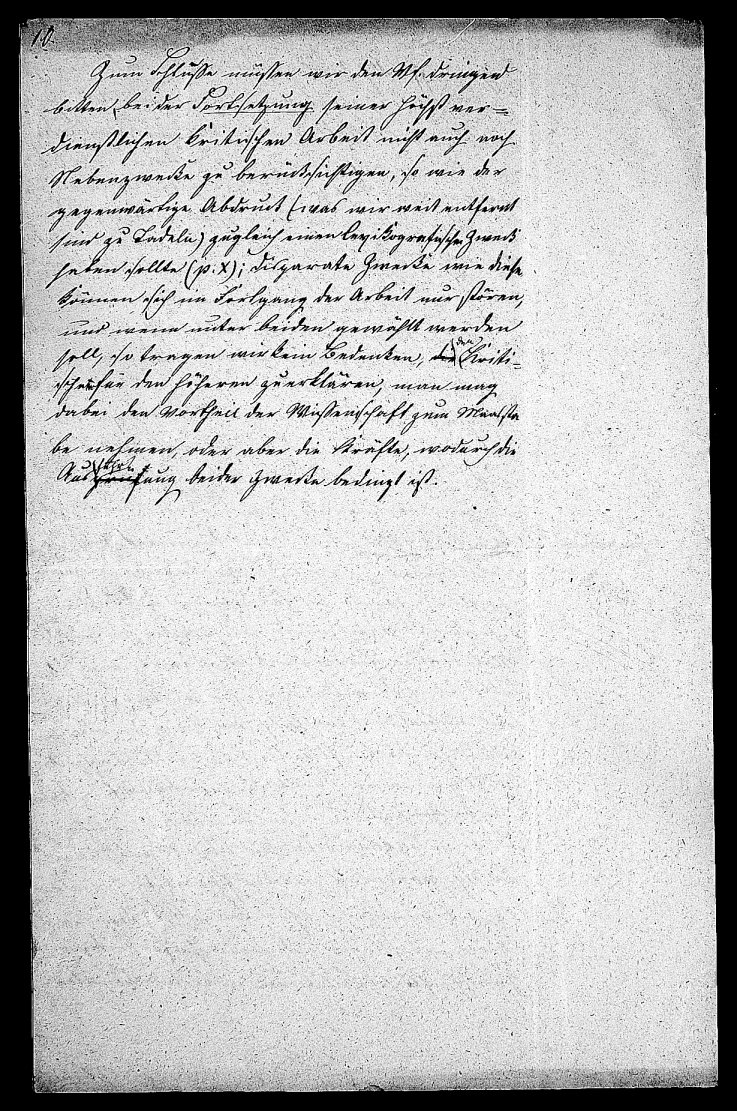 10.
Zum Schlusse müssen wir den Vf. dringend
bitten, bei der Fortsetzung seiner höchst ver-
dienstlichen kritischen Arbeit nicht auch noch
Nebenzwecke zu berücksichtigen, so wie der
gegenwärtige Abdruck (was wir weit entfernt
sind zu tadeln) zugleich einen lexikografischen Zweck
haben sollte (p. X); disparate Zwecke wie diese
können sich im Fortgang der Arbeit nur stören,
und wenn unter beiden gewählt werden
soll, so tragen wir kein Bedenken, den Kriti-
schen für den höheren zu erklären, man mag
dabei den Vortheil der Wissenschaft zum Maassta-
be nehmen, oder aber die Kräfte, wodurch die
Ausführung beider Zwecke bedingt ist.